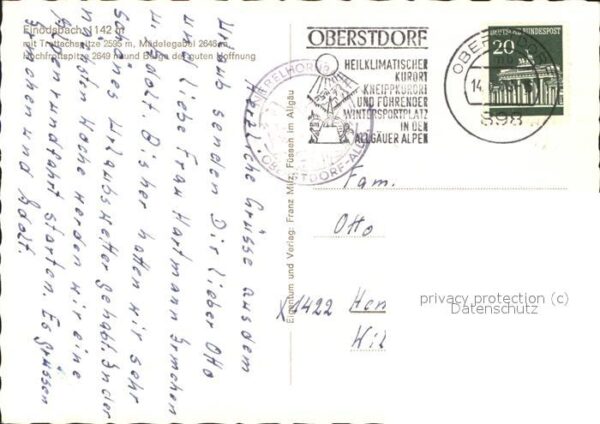 Einödsbach 1142 m
mit Trettachspitze 2595 m, Mädelegabel 2646 m,
Hochfrottspitze 2649 m und Berge der guten Hoffnung
Herzliche Grüsse aus dem
Urlaub senden Dir lieber Otto
und liebe Frau Hartmann Irmchen
und Adolf. Bisher hatten wir sehr
schönes Urlaubswetter gehabt. In der
nächst. Woche werden wir eine
Seenrundfahrt starten. Es grüssen
Irmchen und Adolf.
Eigentum und Verlag: Franz Milz, Füssen im Allgäu
NEBELHORN
OBERSTDORF-ALLG
OBERSTDORF
HEILKLIMATISCHER
KURORT
KNEIPPKURORT
UND FÜHRENDER
WINTERSPORTPLATZ
IN DEN
ALLGÄUER ALPEN
OBERSTDORF
14.
898
DEUTSCHE BUNDESPOST
20
Fam.
Otto
X1422 Hen
privacy protection (c)
Datenschutz